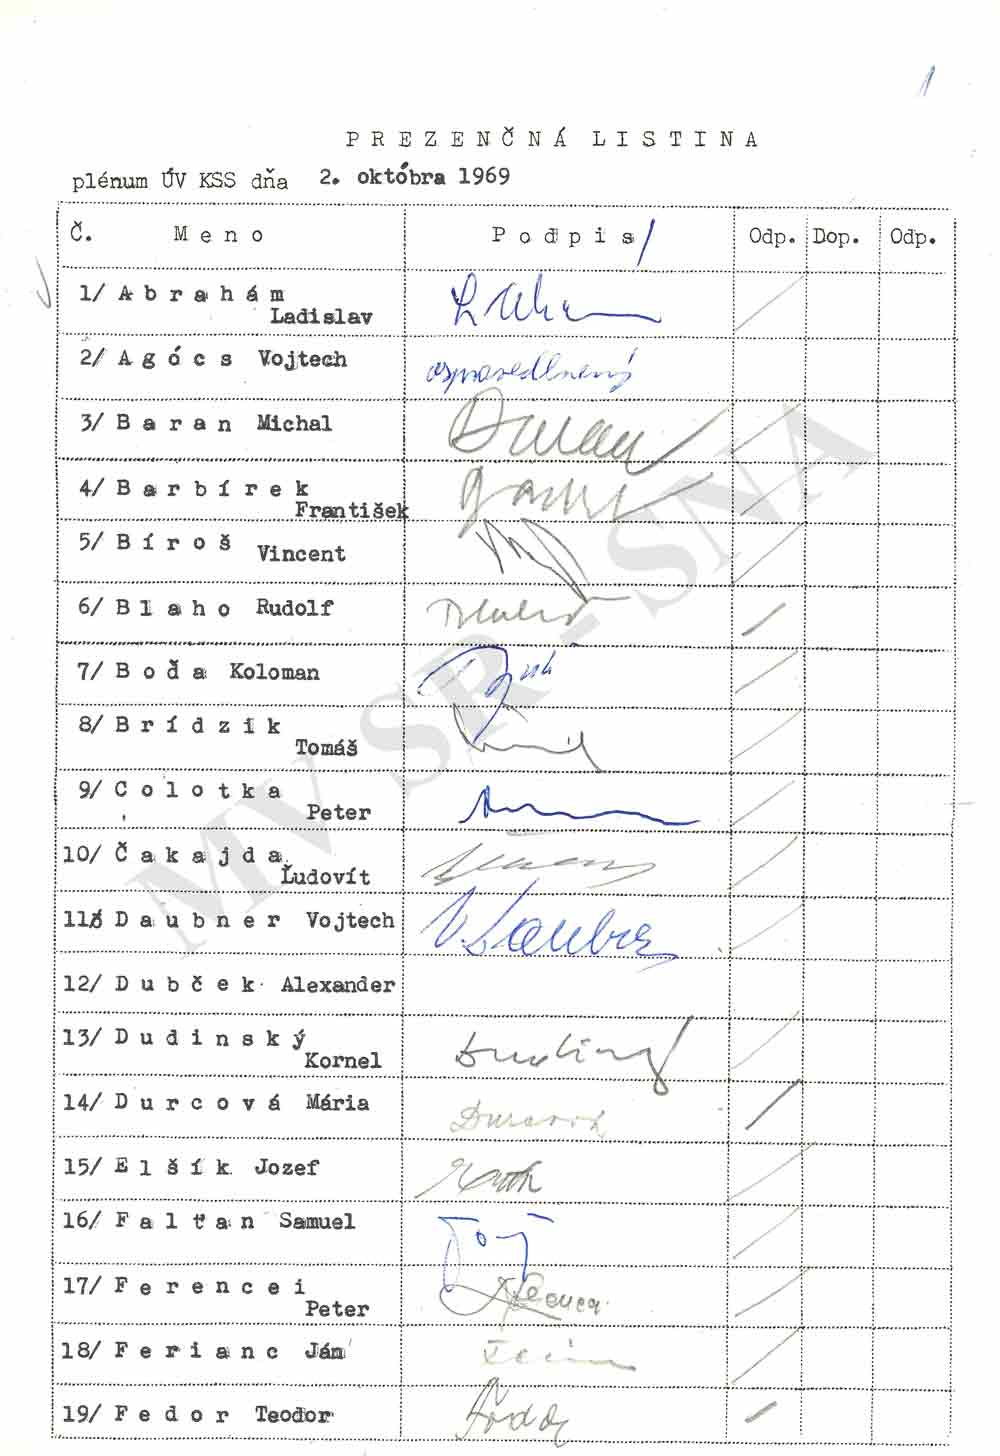 1
PREZENČNÁ LISTINA
plénum ÚV KSS dňa 2. októbra 1969
Č. Meno Podpis Odp. Dop. Odp.
1/ Abrahám
Ladislav
2/ Agócs Vojtech ospravedlnený
3/ Baran Michal
4/ Barbírek
František
5/ Bíroš Vincent
6/ Blaho Rudolf
7/ Boďa Koloman
8/ Brídzik
Tomáš
9/ Colotka
Peter
10/ Čakajda
Ľudovít
11/ Daubner Vojtech V. Daubner
12/ Dubček Alexander
13/ Dudinský
Kornel
14/ Durcová Mária Durcová
15/ Elšík Jozef
16/ Falťan Samuel
17/ Ferencei
Peter
18/ Ferianc Ján
19/ Fedor Teodor
MV SR - SNA